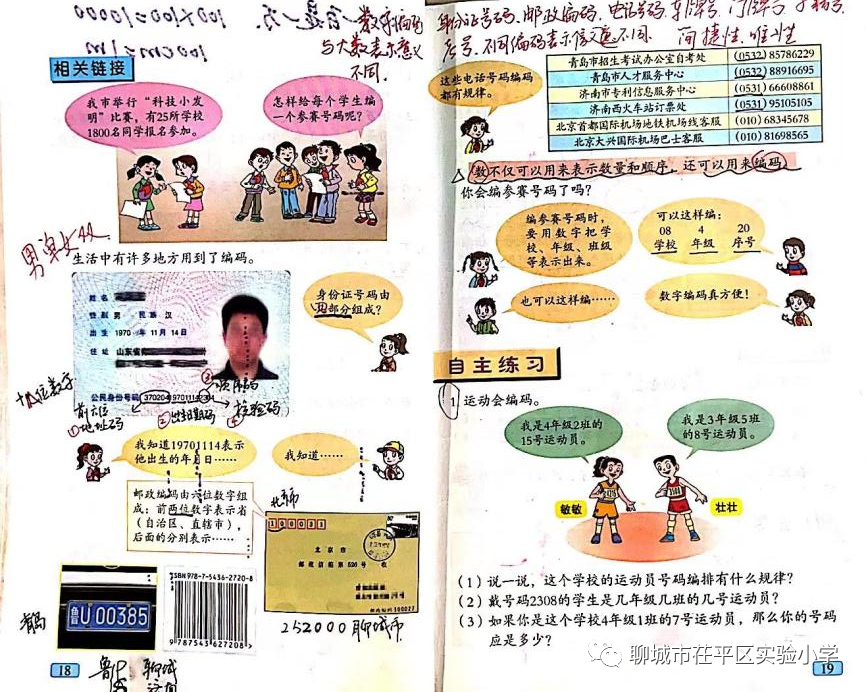 100×100=10000
100cm=1m
数字编码
与大数表示意义
不同.
相关链接
我市举行“科技小发
明”比赛，有25所学校
1800名同学报名参加。
怎样给每个学生编
一个参赛号码呢？
男单女双
生活中有许多地方用到了编码。
姓名
性别 男 民族 汉
出生 1970 年 11 月 14 日
住址 山东省
公民身份号码
身份证号码由
四部分组成？
十八位数字
前六位
①地址码
②出生日期码
③顺序码
④校验码
我知道19701114表示
他出生的年月日……
我知道……
邮政编码由六位数字组
成：前两位数字表示省
（自治区、直辖市），
后面的分别表示……
北京市
100031
北京市
邮政信箱第 526 号 收
100027
ISBN 978-7-5436-2720-8
9 787543 627208 >
鲁U 00385
青岛
252000 聊城市
鲁P 聊城
18
身份证号码、邮政编码、电话号码、车牌号、门牌号
不同编码表示信息不同. 简捷性、唯一性
这些电话号码编码
都有规律。
青岛市招生考试办公室自考处 (0532) 85786229
青岛市人才服务中心 (0532) 88916695
济南市专利信息服务中心 (0531) 66608861
济南西火车站订票处 (0531) 95105105
北京首都国际机场地铁机场线客服 (010) 68345678
北京大兴国际机场巴士客服 (010) 81698565
数不仅可以用来表示数量和顺序，还可以用来编码。
你会编参赛号码了吗？
编参赛号码时，
要用数字把学
校、年级、班级
等表示出来。
可以这样编：
08 4 20
学校 年级 序号
也可以这样编……
数字编码真方便！
自主练习
1. 运动会编码。
我是4年级2班的
15号运动员。
我是3年级5班
的8号运动员。
敏敏
壮壮
（1）说一说，这个学校的运动员号码编排有什么规律？
（2）戴号码2308的学生是几年级几班的几号运动员？
（3）如果你是这个学校4年级1班的7号运动员，那么你的号码
应是多少？
聊城市茌平区实验小学
19